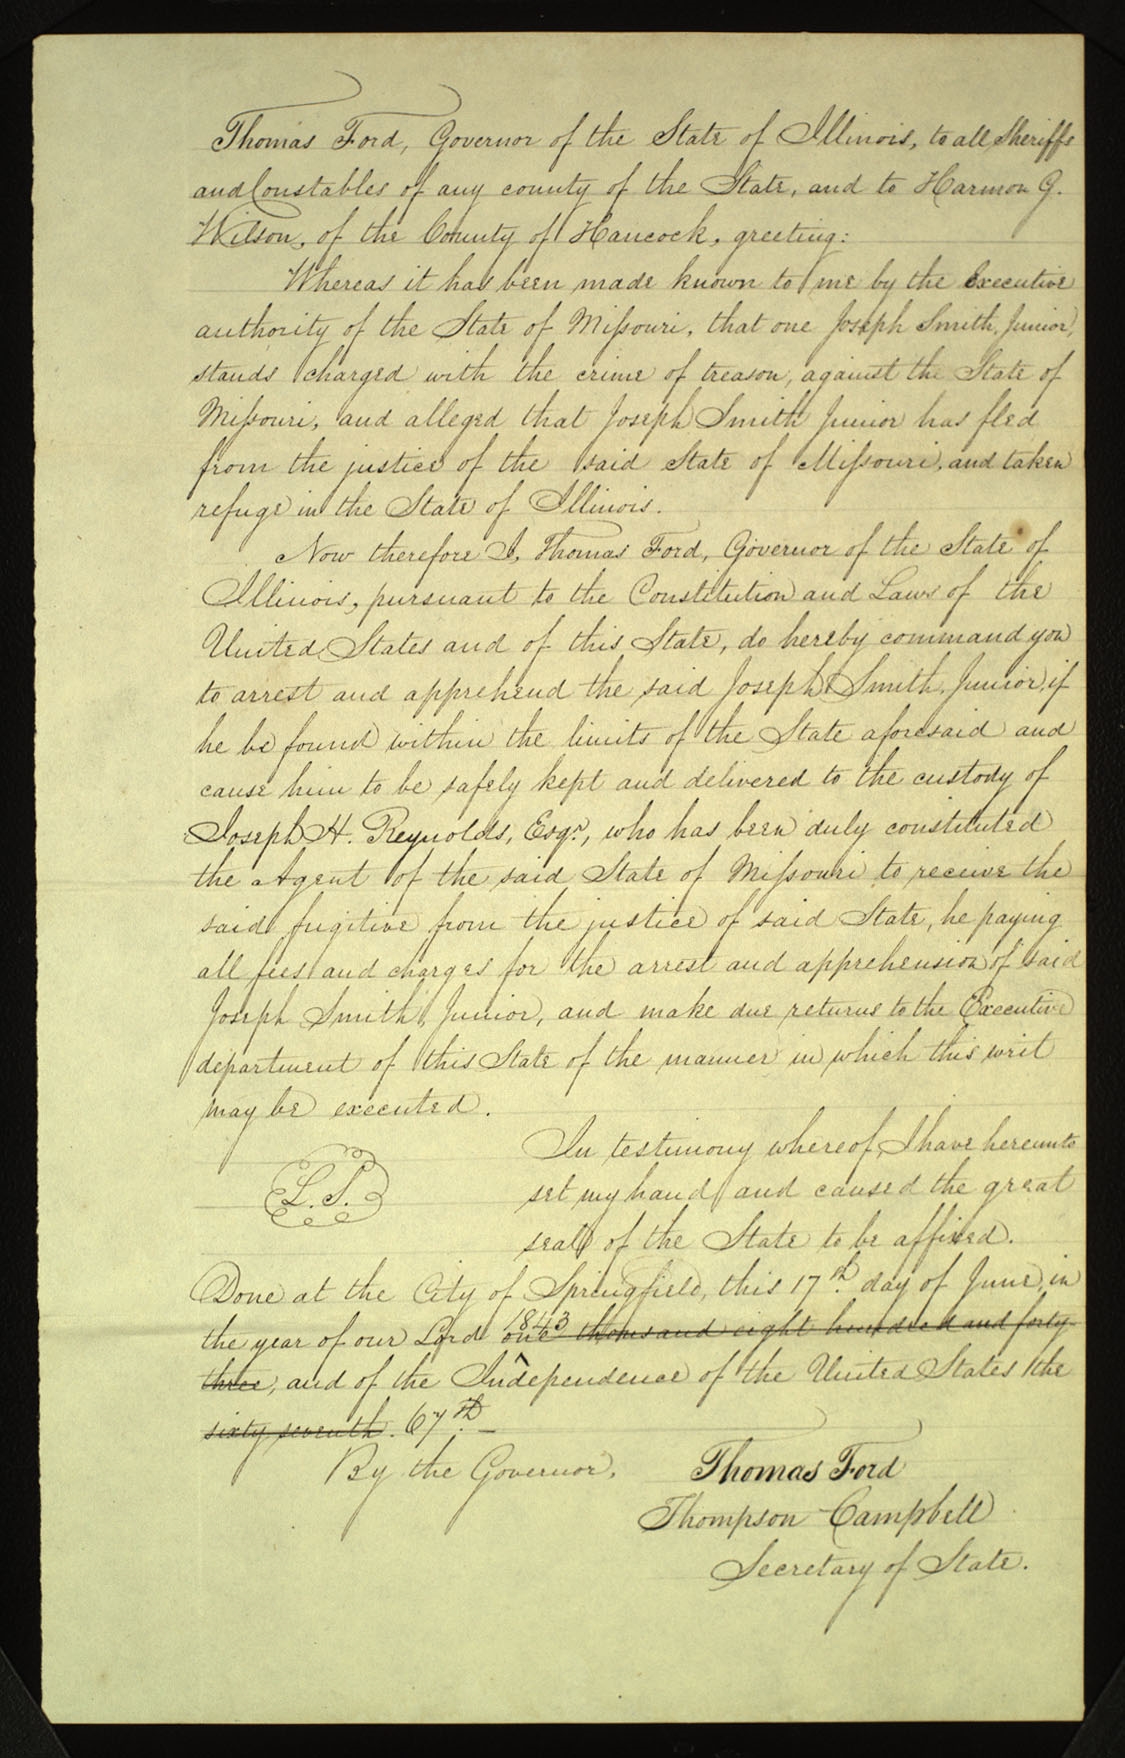 Thomas Ford, Governor of the State of Illinois, to all Sheriffs
and Constables of any county of the State, and to Harmon G.
Wilson, of the County of Hancock, greeting:
Whereas it has been made known to me by the Executive
authority of the State of Missouri, that one Joseph Smith, Junior,
stands charged with the crime of treason, against the State of
Missouri, and alleged that Joseph Smith Junior has fled
from the justice of the said State of Missouri, and taken
refuge in the State of Illinois.
Now therefore I, Thomas Ford, Governor of the State of
Illinois, pursuant to the Constitution and Laws of the
United States and of this State, do hereby command you
to arrest and apprehend the said Joseph Smith, Junior, if
he be found within the limits of the State aforesaid and
cause him to be safely kept and delivered to the custody of
Joseph H. Reynolds, Esqr., who has been duly constituted
the Agent of the said State of Missouri to receive the
said fugitive from the justice of said State, he paying
all fees and charges for the arrest and apprehension of said
Joseph Smith, Junior, and make due returns to the Executive
department of this State of the manner in which this writ
may be executed.
In testimony whereof, I have hereunto
L. S. set my hand and caused the great
seal of the State to be affixed.
Done at the City of Springfield, this 17th. day of June, in
1843
the year of our Lord one thousand eight hundred and forty
three, and of the Independence of the United States the
sixty seventh. 67th.
By the Governor, Thomas Ford
Thompson Campbell
Secretary of State.